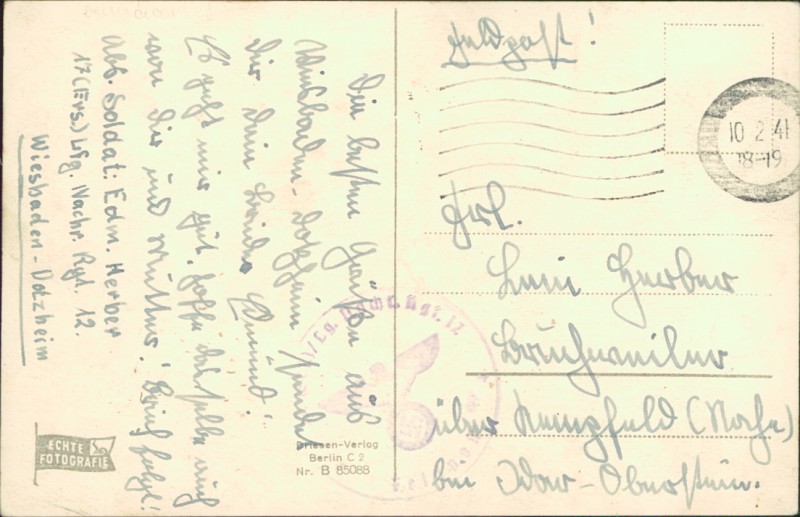 Die besten Grüße aus
Wiesbaden-Dotzheim sendet
Dir Dein Bruder Edmund!
Es geht mir gut, hoffe dasselbe auch
von Dir und Mutter! Brief folgt!
Abs. Soldat: Edm. Herber
17.(Ers.) Lfg. Nachr. Rgt. 12.
Wiesbaden - Dotzheim
ECHTE
FOTOGRAFIE
Driesen-Verlag
Berlin C 2
Nr. B 85088
Feldpost!
10 2 41
18-19
Frl.
Herber
Bruchweiler
über Kempfeld (Nahe)
bei Idar-Oberstein.
Nachr. Rgt. 12